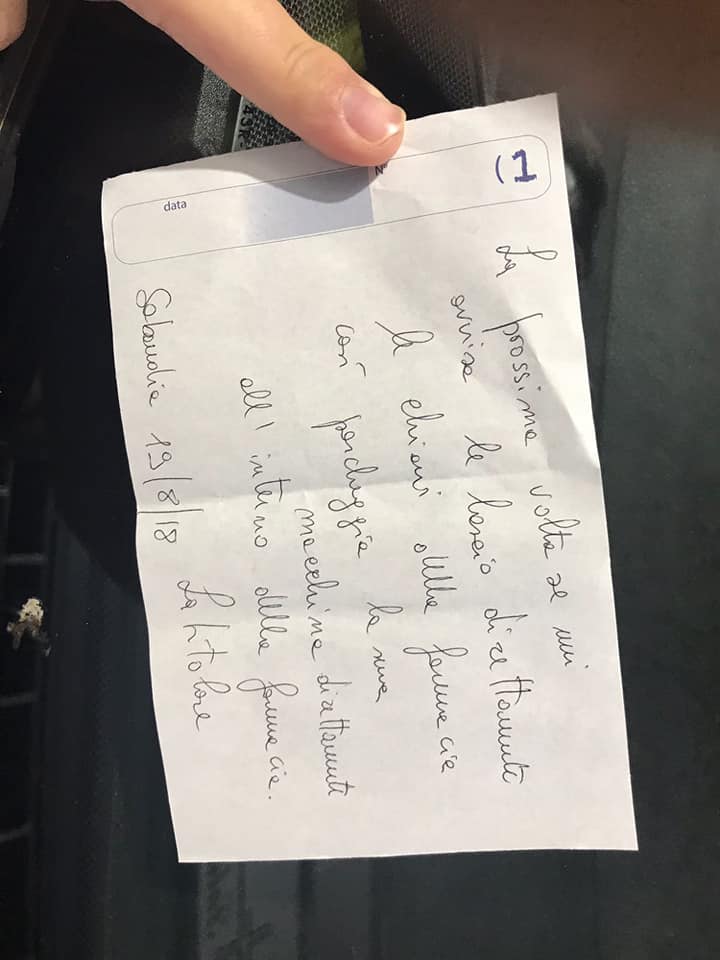 N°
1)
data
La prossima volta se mi
avvisa le lascio direttamente
le chiavi della farmacia
così parcheggia la sua
macchina direttamente
all'interno della farmacia.
Sabaudia 19/8/18
La titolare